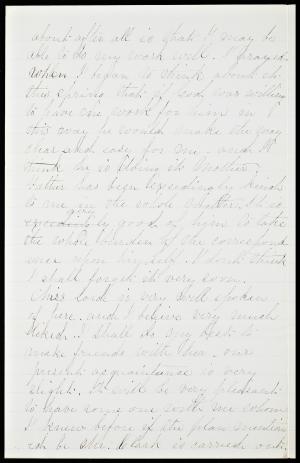 about after all is that I may be
able to do my work well. I prayed
when I began to think about it
this spring that if God was willing
to have me work for him in
this way he would make the way
clear and easy for me, and I
think he is doing it. Mother
rather has been exceedingly kind
to me in the whole matter. It is
exceedingly good of him to take
the whole burden of the correspond
ence upon himself. I don't think
I shall forget it very soon.
Miss Lord is very well spoken
of here and I believe very much
liked. I shall do my best to
make friends with her. Our
present acquaintance is very
slight. It will be very pleasant
to have some one with me whom
I knew before if the plan mention
ed by Mr. Clark is carried out.